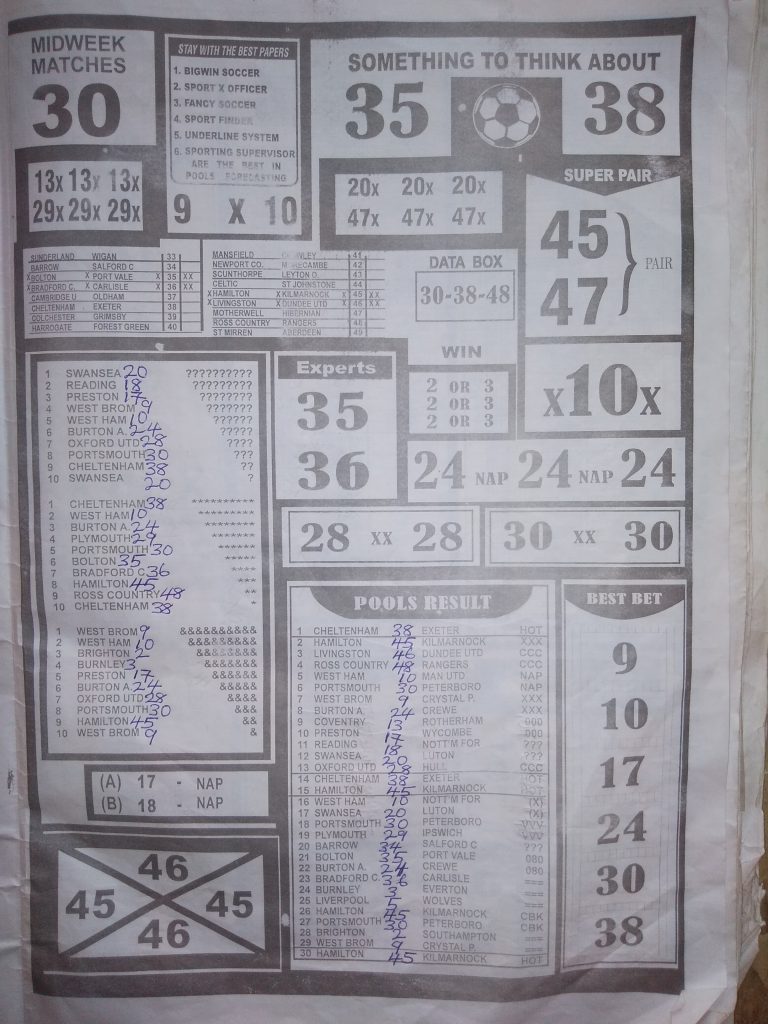 MIDWEEK
MATCHES
30
STAY WITH THE BEST PAPERS
1. BIGWIN SOCCER
2. SPORT X OFFICER
3. FANCY SOCCER
4. SPORT FINDER
5. UNDERLINE SYSTEM
6. SPORTING SUPERVISOR
ARE THE BEST IN
POOLS FORECASTING
9 X 10
SOMETHING TO THINK ABOUT
35 38
13x 13x 13x
29x 29x 29x
20x 20x 20x
47x 47x 47x
SUPER PAIR
45
47
PAIR
SUNDERLAND WIGAN 33
BARROW SALFORD C 34
X BOLTON X PORT VALE X 35 XX
X BRADFORD C. X CARLISLE X 36 XX
CAMBRIDGE U OLDHAM 37
CHELTENHAM EXETER 38
COLCHESTER GRIMSBY 39
HARROGATE FOREST GREEN 40
MANSFIELD 41
NEWPORT CO. 42
SCUNTHORPE LEYTON O. 43
CELTIC ST JOHNSTONE 44
X HAMILTON X KILMARNOCK X 45 XX
X LIVINGSTON X DUNDEE UTD X 46 XX
MOTHERWELL HIBERNIAN 47
ROSS COUNTRY RANGERS 48
ST MIRREN ABERDEEN 49
DATA BOX
30-38-48
WIN
2 OR 3
2 OR 3
2 OR 3
x10x
1 SWANSEA 20 ??????????
2 READING 18 ?????????
3 PRESTON 17 ????????
4 WEST BROM 9 ???????
5 WEST HAM 10 ??????
6 BURTON A. 24 ?????
7 OXFORD UTD 28 ????
8 PORTSMOUTH 30 ???
9 CHELTENHAM 38 ??
10 SWANSEA 20 ?
1 CHELTENHAM 38 **********
2 WEST HAM 10 *********
3 BURTON A. 24 ********
4 PLYMOUTH 29 *******
5 PORTSMOUTH 30 ******
6 BOLTON 35 *****
7 BRADFORD C 36 ****
8 HAMILTON 45 ***
9 ROSS COUNTRY 48 **
10 CHELTENHAM 38 *
1 WEST BROM 9 &&&&&&&&&&
2 WEST HAM 10 &&&&&&&&&
3 BRIGHTON 2 &&&&&&&&
4 BURNLEY 3 &&&&&&&
5 PRESTON 17 &&&&&&
6 BURTON A. 24 &&&&&
7 OXFORD UTD 28 &&&&
8 PORTSMOUTH 30 &&&
9 HAMILTON 45 &&
10 WEST BROM 9 &
Experts
35
36
24 NAP 24 NAP 24
28 XX 28
30 XX 30
POOLS RESULT
1 CHELTENHAM 38 EXETER HOT
2 HAMILTON 45 KILMARNOCK XXX
3 LIVINGSTON 46 DUNDEE UTD CCC
4 ROSS COUNTRY 48 RANGERS CCC
5 WEST HAM 10 MAN UTD NAP
6 PORTSMOUTH 30 PETERBORO NAP
7 WEST BROM 9 CRYSTAL P. XXX
8 BURTON A. 24 CREWE XXX
9 COVENTRY 13 ROTHERHAM 000
10 PRESTON 17 WYCOMBE 000
11 READING 18 NOTT'M FOR ???
12 SWANSEA 20 LUTON ???
13 OXFORD UTD 28 HULL CCC
14 CHELTENHAM 38 EXETER HOT
15 HAMILTON 45 KILMARNOCK HOT
16 WEST HAM 10 NOTT'M FOR (X)
17 SWANSEA 20 LUTON (X)
18 PORTSMOUTH 30 PETERBORO VVV
19 PLYMOUTH 29 IPSWICH VVV
20 BARROW 34 SALFORD C ???
21 BOLTON 35 PORT VALE 080
22 BURTON A. 24 CREWE 080
23 BRADFORD C. 36 CARLISLE ===
24 BURNLEY 3 EVERTON ===
25 LIVERPOOL 5 WOLVES ===
26 HAMILTON 45 KILMARNOCK CBK
27 PORTSMOUTH 30 PETERBORO CBK
28 BRIGHTON 2 SOUTHAMPTON ===
29 WEST BROM 9 CRYSTAL P. ===
30 HAMILTON 45 KILMARNOCK HOT
BEST BET
9
10
17
24
30
38
(A) 17 - NAP
(B) 18 - NAP
46
45 45
46